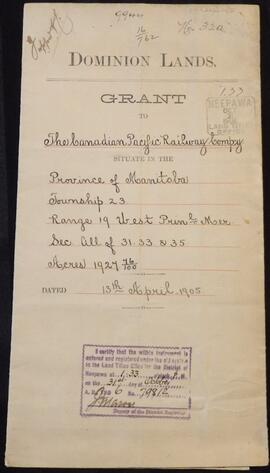 16
762
DOMINION LANDS.
GRANT
1.33
TO
NEEPAWA
The Canadian Pacific Railway Compy
OFFICE
SITUATE IN THE
Province of Manitoba
Township 23
Range 19 West Prinl. Mer.
Sec. All of 31. 33 & 35
Acres 1927 76/100
DATED 13th April 1905
I certify that the within instrument is
entered and registered under the old system
in the Land Titles Office for the District of
Neepawa at 1.33
on the 31st day of October
A.D. 190 6 No. 7981
Deputy of the District Registrar